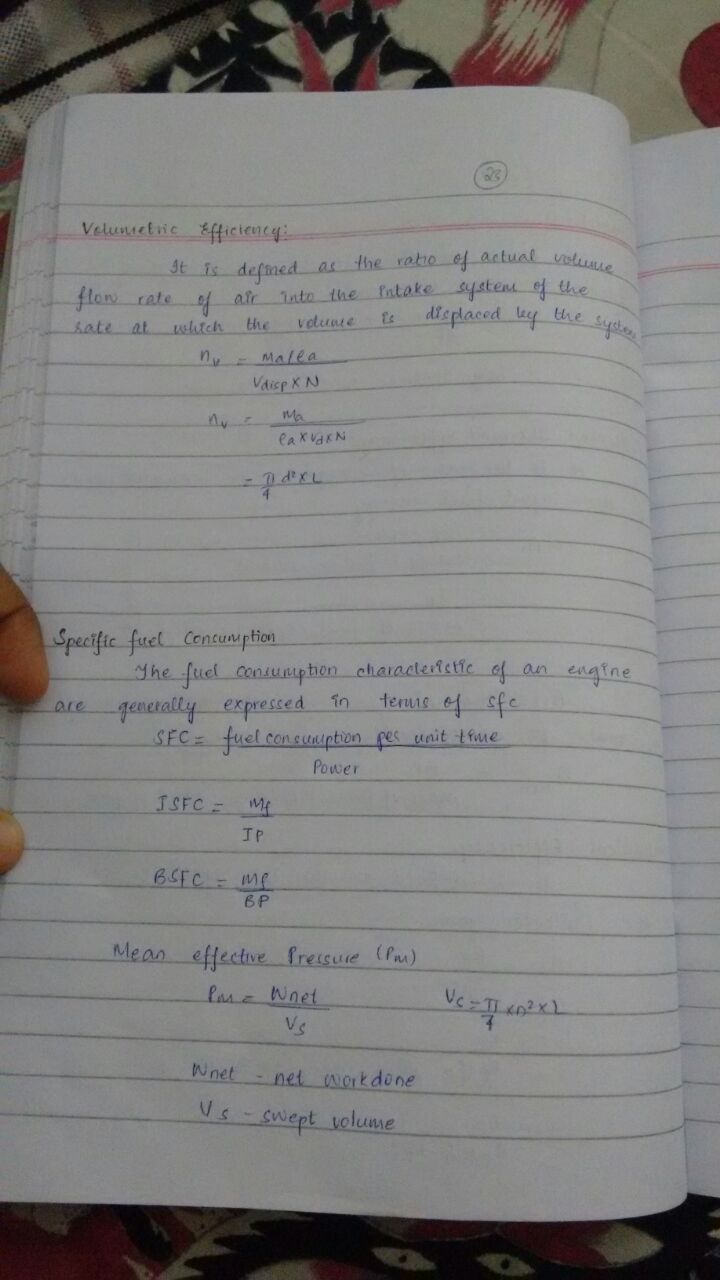 23
Volumetric Efficiency:
It is defined as the ratio of actual volume
flow rate of air into the intake system of the
rate at which the volume is displaced by the system
nv = ma/ρa
Vdisp X N
nv = Ma
ρa x Vd x N
= π/4 d² x L
Specific fuel Consumption
The fuel consumption characteristic of an engine
are generally expressed in terms of sfc
SFC = fuel consumption per unit time
Power
ISFC = Mf
IP
BSFC = Mf
BP
Mean effective Pressure (Pm)
Pm = Wnet
Vs
Vs = π/4 x D² x L
Wnet - net workdone
Vs - swept volume